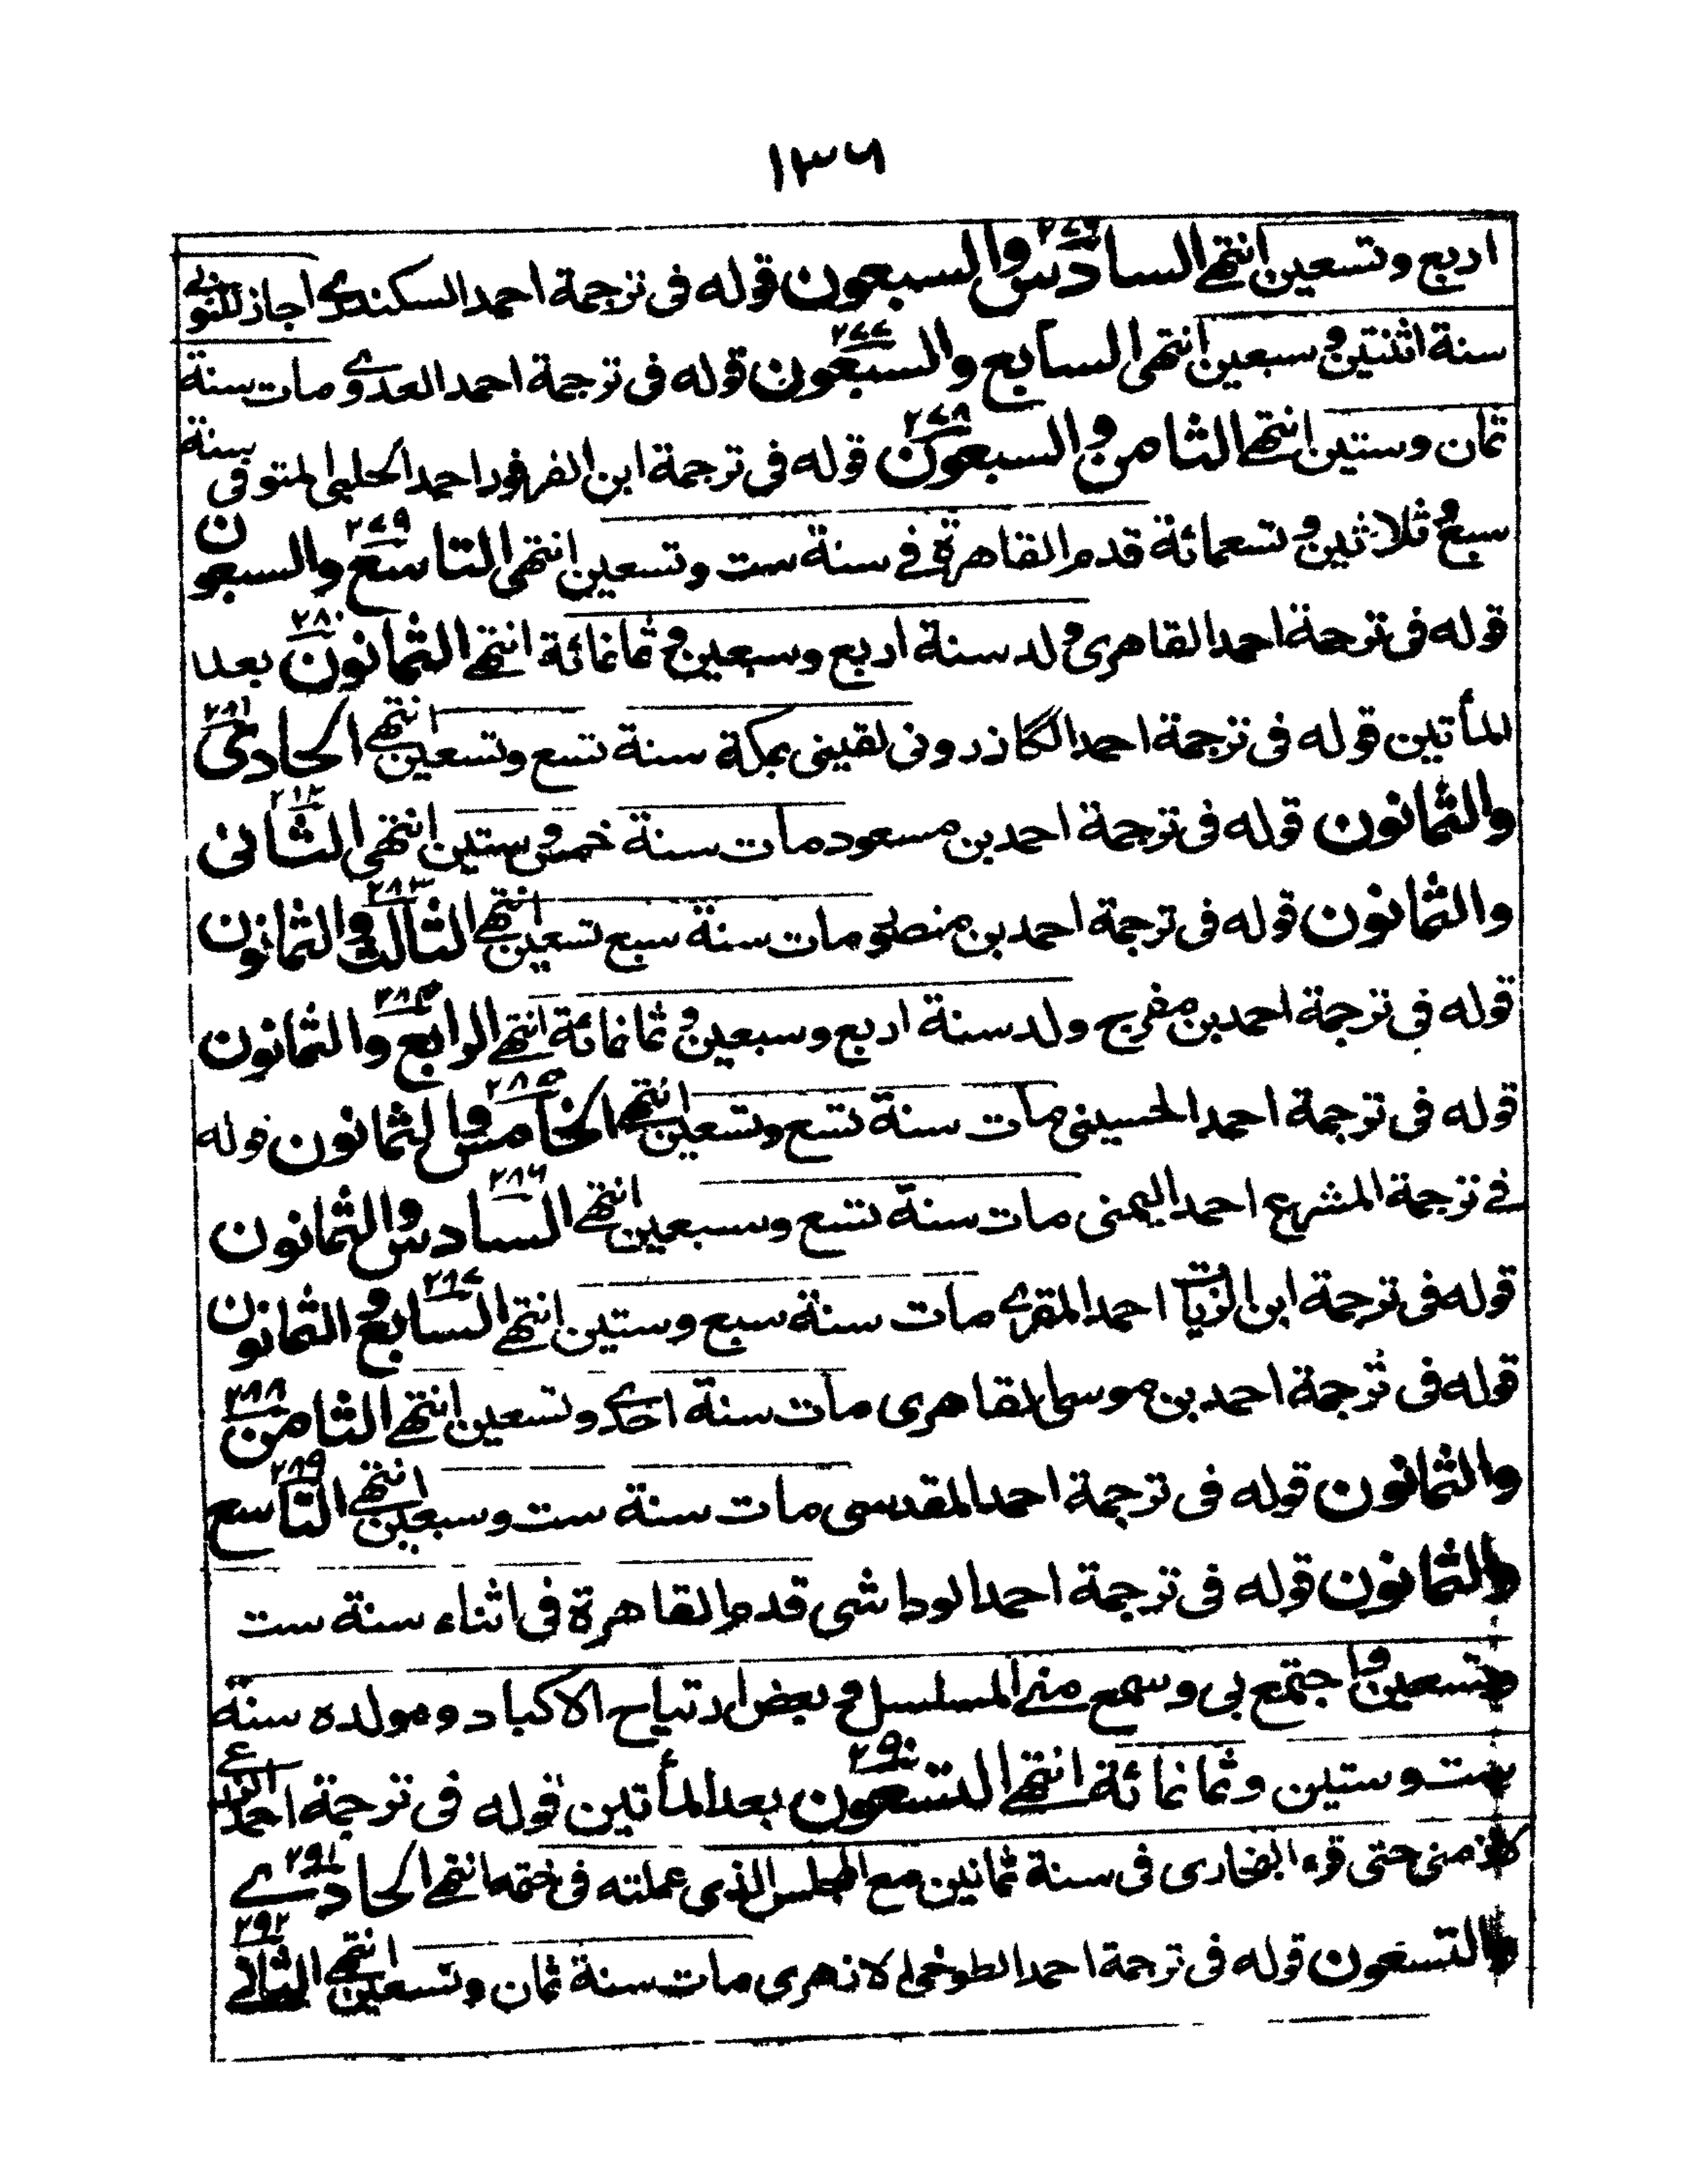 ١٣٦
اربع وتسعين انتهى السادس والسبعون ٢٧٦ قوله فى ترجمة احمد السكندرى اجاز للنوبى
سنة اثنتين وسبعين انتهى السابع والسبعون ٢٧٧ قوله فى ترجمة احمد العدوى مات سنة
ثمان وستين انتهى الثامن والسبعون ٢٧٨ قوله فى ترجمة ابن الفرفور احمد الحلبى المتوفى سنة
سبع وثلاثين وتسعمائة قدم القاهرة فى سنة ست وتسعين انتهى التاسع والسبعون ٢٧٩
قوله فى ترجمة احمد القاهرى ولد سنة اربع وسبعين وثمانمائة انتهى الثمانون ٢٨٠ بعد
المأتين قوله فى ترجمة احمد الكازرونى لقينى بمكة سنة تسع وتسعين انتهى الحادى ٢٨١
والثمانون قوله فى ترجمة احمد بن مسعود مات سنة خمس وستين انتهى الثانى ٢٨٢
والثمانون قوله فى ترجمة احمد بن مات سنة سبع تسعين انتهى الثالث والثمانون ٢٨٣
قوله فى ترجمة احمد بن مفرح ولد سنة اربع وسبعين وثمانمائة انتهى الرابع والثمانون ٢٨٤
قوله فى ترجمة احمد الحسينى مات سنة تسع وتسعين انتهى الخامس والثمانون ٢٨٥ قوله
فى ترجمة المشرع احمد اليمنى مات سنة تسع وسبعين انتهى السادس والثمانون ٢٨٦
قوله فى ترجمة ابن الزيات احمد المقرى مات سنة سبع وستين انتهى السابع والثمانون ٢٨٧
قوله فى ترجمة احمد بن موسى القاهرى مات سنة احدى وتسعين انتهى الثامن ٢٨٨
والثمانون قوله فى ترجمة احمد المقدسى مات سنة ست وسبعين انتهى التاسع ٢٨٩
والثمانون قوله فى ترجمة احمد الوداشى قدم القاهرة فى اثناء سنة ست
وتسعين واجتمع بى وسمع منى المسلسل وبعض ارتياح الاكباد ومولده سنة
ست وستين وثمانمائة انتهى التسعون ٢٩٠ بعد المأتين قوله فى ترجمة احمد
منى حتى قرء البخارى فى سنة ثمانين مع المجلس الذى عملته فى ختمه انتهى الحادى ٢٩١
والتسعون قوله فى ترجمة احمد الطوخى الازهرى مات سنة ثمان وتسعين انتهى الثانى ٢٩٢